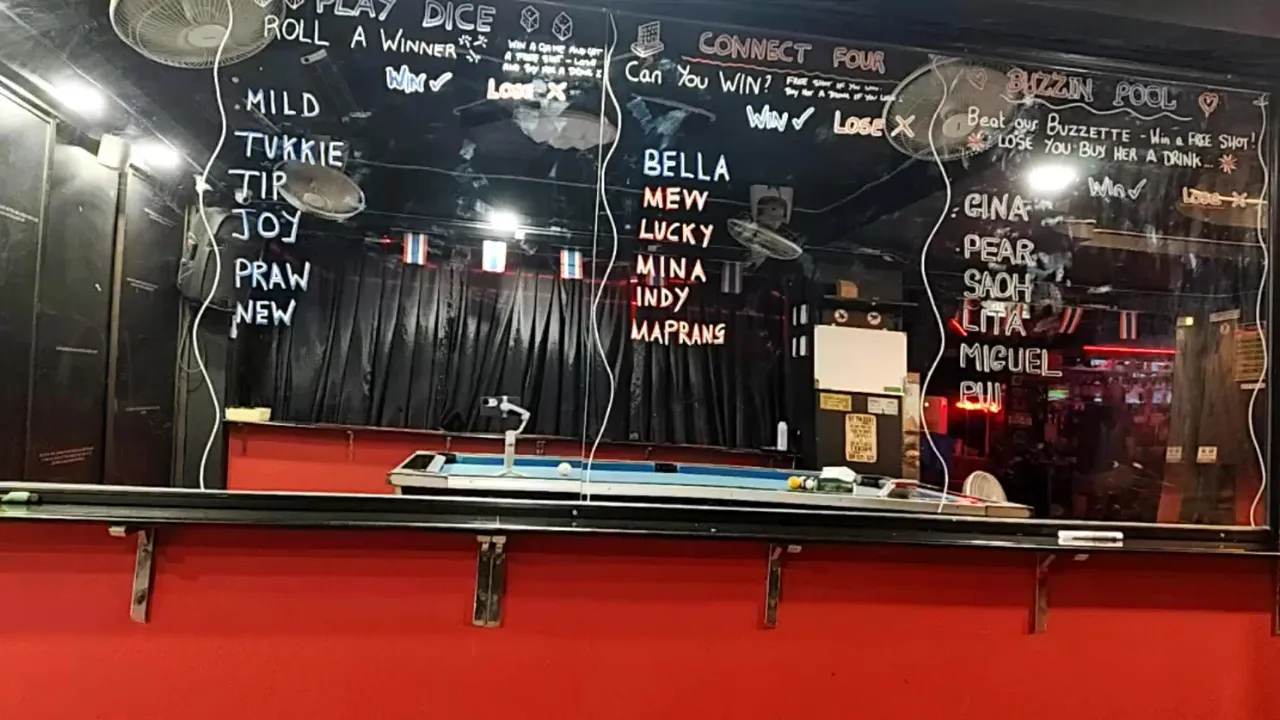 PLAY DICE
ROLL A WINNER
WIN A GAME AND GET
A FREE SHOT - LOSE
AND BUY HER A DRINK
WIN ✓ LOSE ✗
MILD
TUKKIE
TIP
JOY
PRAW
NEW
CONNECT FOUR
CAN YOU WIN?
FREE SHOT IF YOU WIN.
BUY HER A DRINK IF YOU LOSE
WIN ✓ LOSE ✗
BELLA
MEW
LUCKY
MINA
INDY
MAPRANG
BUZZIN POOL
Beat our BUZZETTE - Win a FREE SHOT!
LOSE YOU BUY HER A DRINK...
Win ✓ LOSE ✗
GINA
PEAR
SAOH
LITA
MIGUEL
PUI